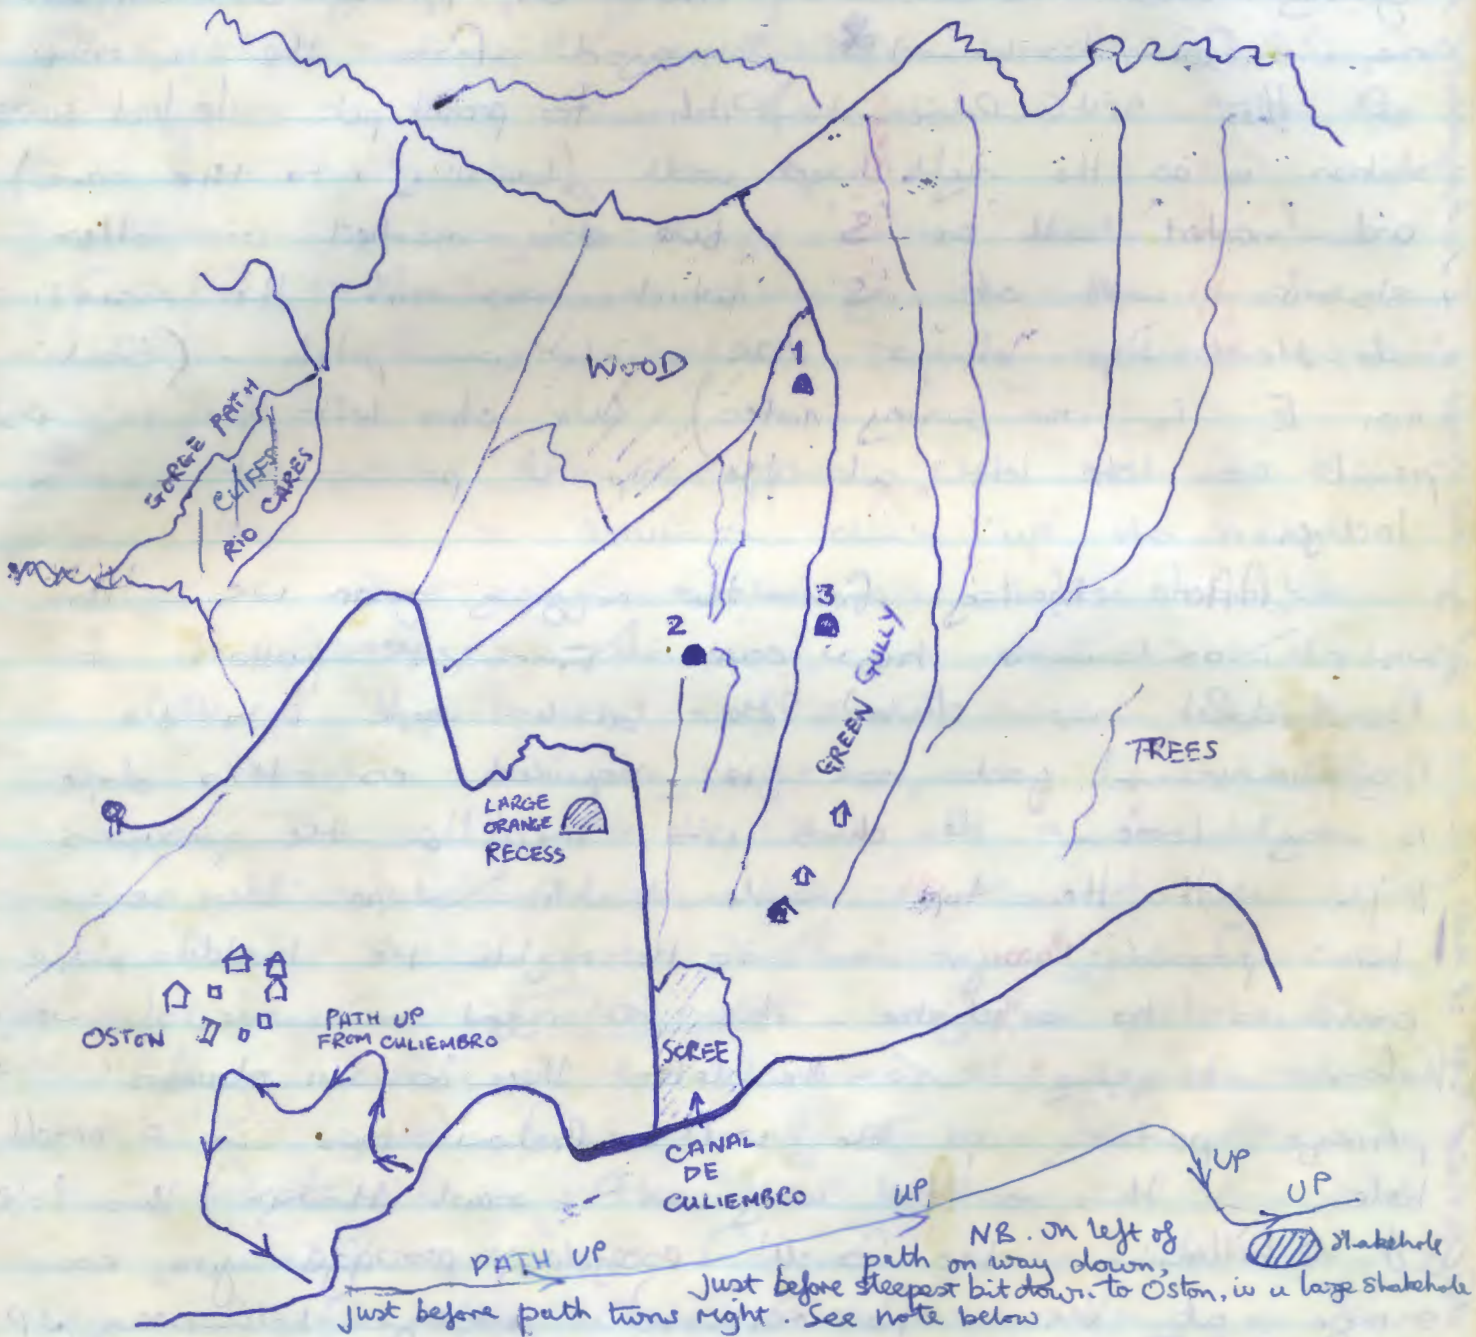 WOOD
1
GORGE PATH
CLIFFS
RIO CARES
3
2
GREEN GULLY
TREES
LARGE
ORANGE
RECESS
OSTON
PATH UP
FROM CULIEMBRO
SCREE
CANAL
DE
CULIEMBRO
UP
UP
UP
PATH UP
NB. on left of
path on way down,
just before steepest bit down to Oston, is a large shakehole
shakehole
just before path turns right. See note below